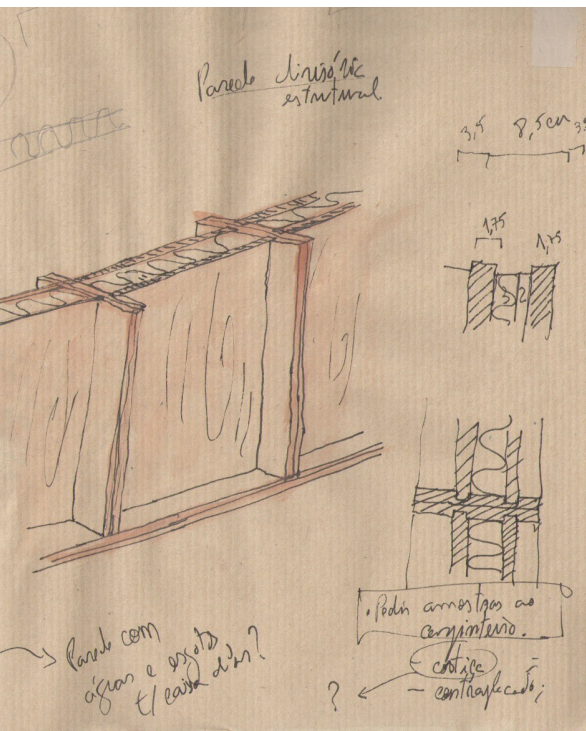 Parede divisória
estrutural
3,5 8,5cm 3,5
1,75 1,75
• Pedir amostras ao
carpinteiro.
- cortiça -
? - contraplacado;
Parede com
águas e esgotos
t/ caixa d'ar?